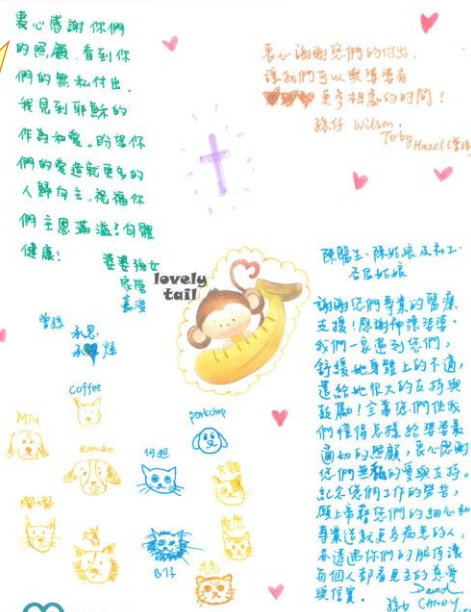 衷心感謝你們
的照顧, 看到你
們的無私付出,
我見到耶穌的
作為和愛. 盼望你
們的愛造就更多的
人歸向主. 祝福你
們主恩滿溢! 身體
健康!
婆婆孫女
家
嘉
曾孫
永恩
永
衷心謝謝您們的付出,
讓我們可以與婆婆有
更多相處的時間!
孫仔 Wilson,
Toby, Hazel (曾孫
lovely
tail
陳醫生, 陳姑娘及社工
各位姑娘
謝謝您們專業的醫療
支援! 感謝神讓婆婆、
我們一家遇到您們,
舒緩她身體上的不適,
還給她很大的支持與
鼓勵! 全靠您們使我
們懂得怎樣給婆婆最
適切的照顧, 衷心感謝
您們無私的愛與支持。
紀念您們工作的勞苦,
願上帝藉您們的細心和
專業造就更多病患的人,
亦透過你們的服侍讓
每個人都看見主的慈愛
與信實。
David
孫女 Cindy
Coffee
Milu
porkchop
何超
B仔